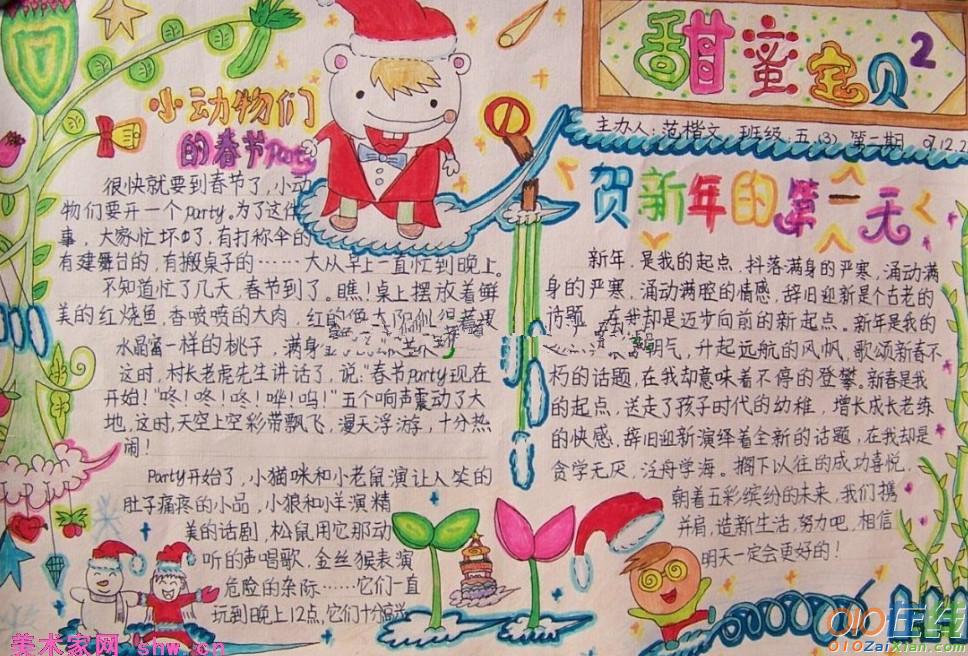 甜蜜宝贝2
主办人:范楷文 班级:五(3) 第二期 07.12.2
小动物们
的春节Party
很快就要到春节了,小动
物们要开一个party。为了这件
事,大家忙坏了,有打称伞的
有建舞台的,有搬桌子的……大从早上一直忙到晚上。
不知道忙了几天,春节到了。瞧!桌上摆放着鲜
美的红烧鱼,香喷喷的大肉,红的
水晶富一样的桃子,满身
这时,村长老虎先生讲话了,说:"春节party现在
开始!"咚!咚!咚!咻!呜!"五个响声震动了大
地,这时,天空上空彩带飘飞,漫天浮游,十分热
闹!
Party开始了,小猫咪和小老鼠演让人笑的
肚子痛疼的小品,小狼和小羊演精
美的话剧,松鼠用它那动
听的声唱歌,金丝猴表演
危险的杂际……它们一直
玩到晚上12点,它们十分高兴
贺新年的第一天
新年,是我的起点,抖落满身的严寒,涌动满
身的严寒,涌动满腔的情感,辞旧迎新是个古老的
诗题,在我却是迈步向前的新起点。新年是我的
明气,升起远航的风帆,歌颂新春不
朽的话题,在我却意味着不停的登攀。新春是我
的起点,送走了孩子时代的幼稚,增长成长老练
的快感,辞旧迎新演绎着全新的话题,在我却是
贪学无厌,泛舟学海。搁下以往的成功喜悦,
朝着五彩缤纷的未来,我们携
并肩,造新生活,努力吧,相信
明天一定会更好的!
美术家网 shw.cn
010在线
010ZaiXian.com